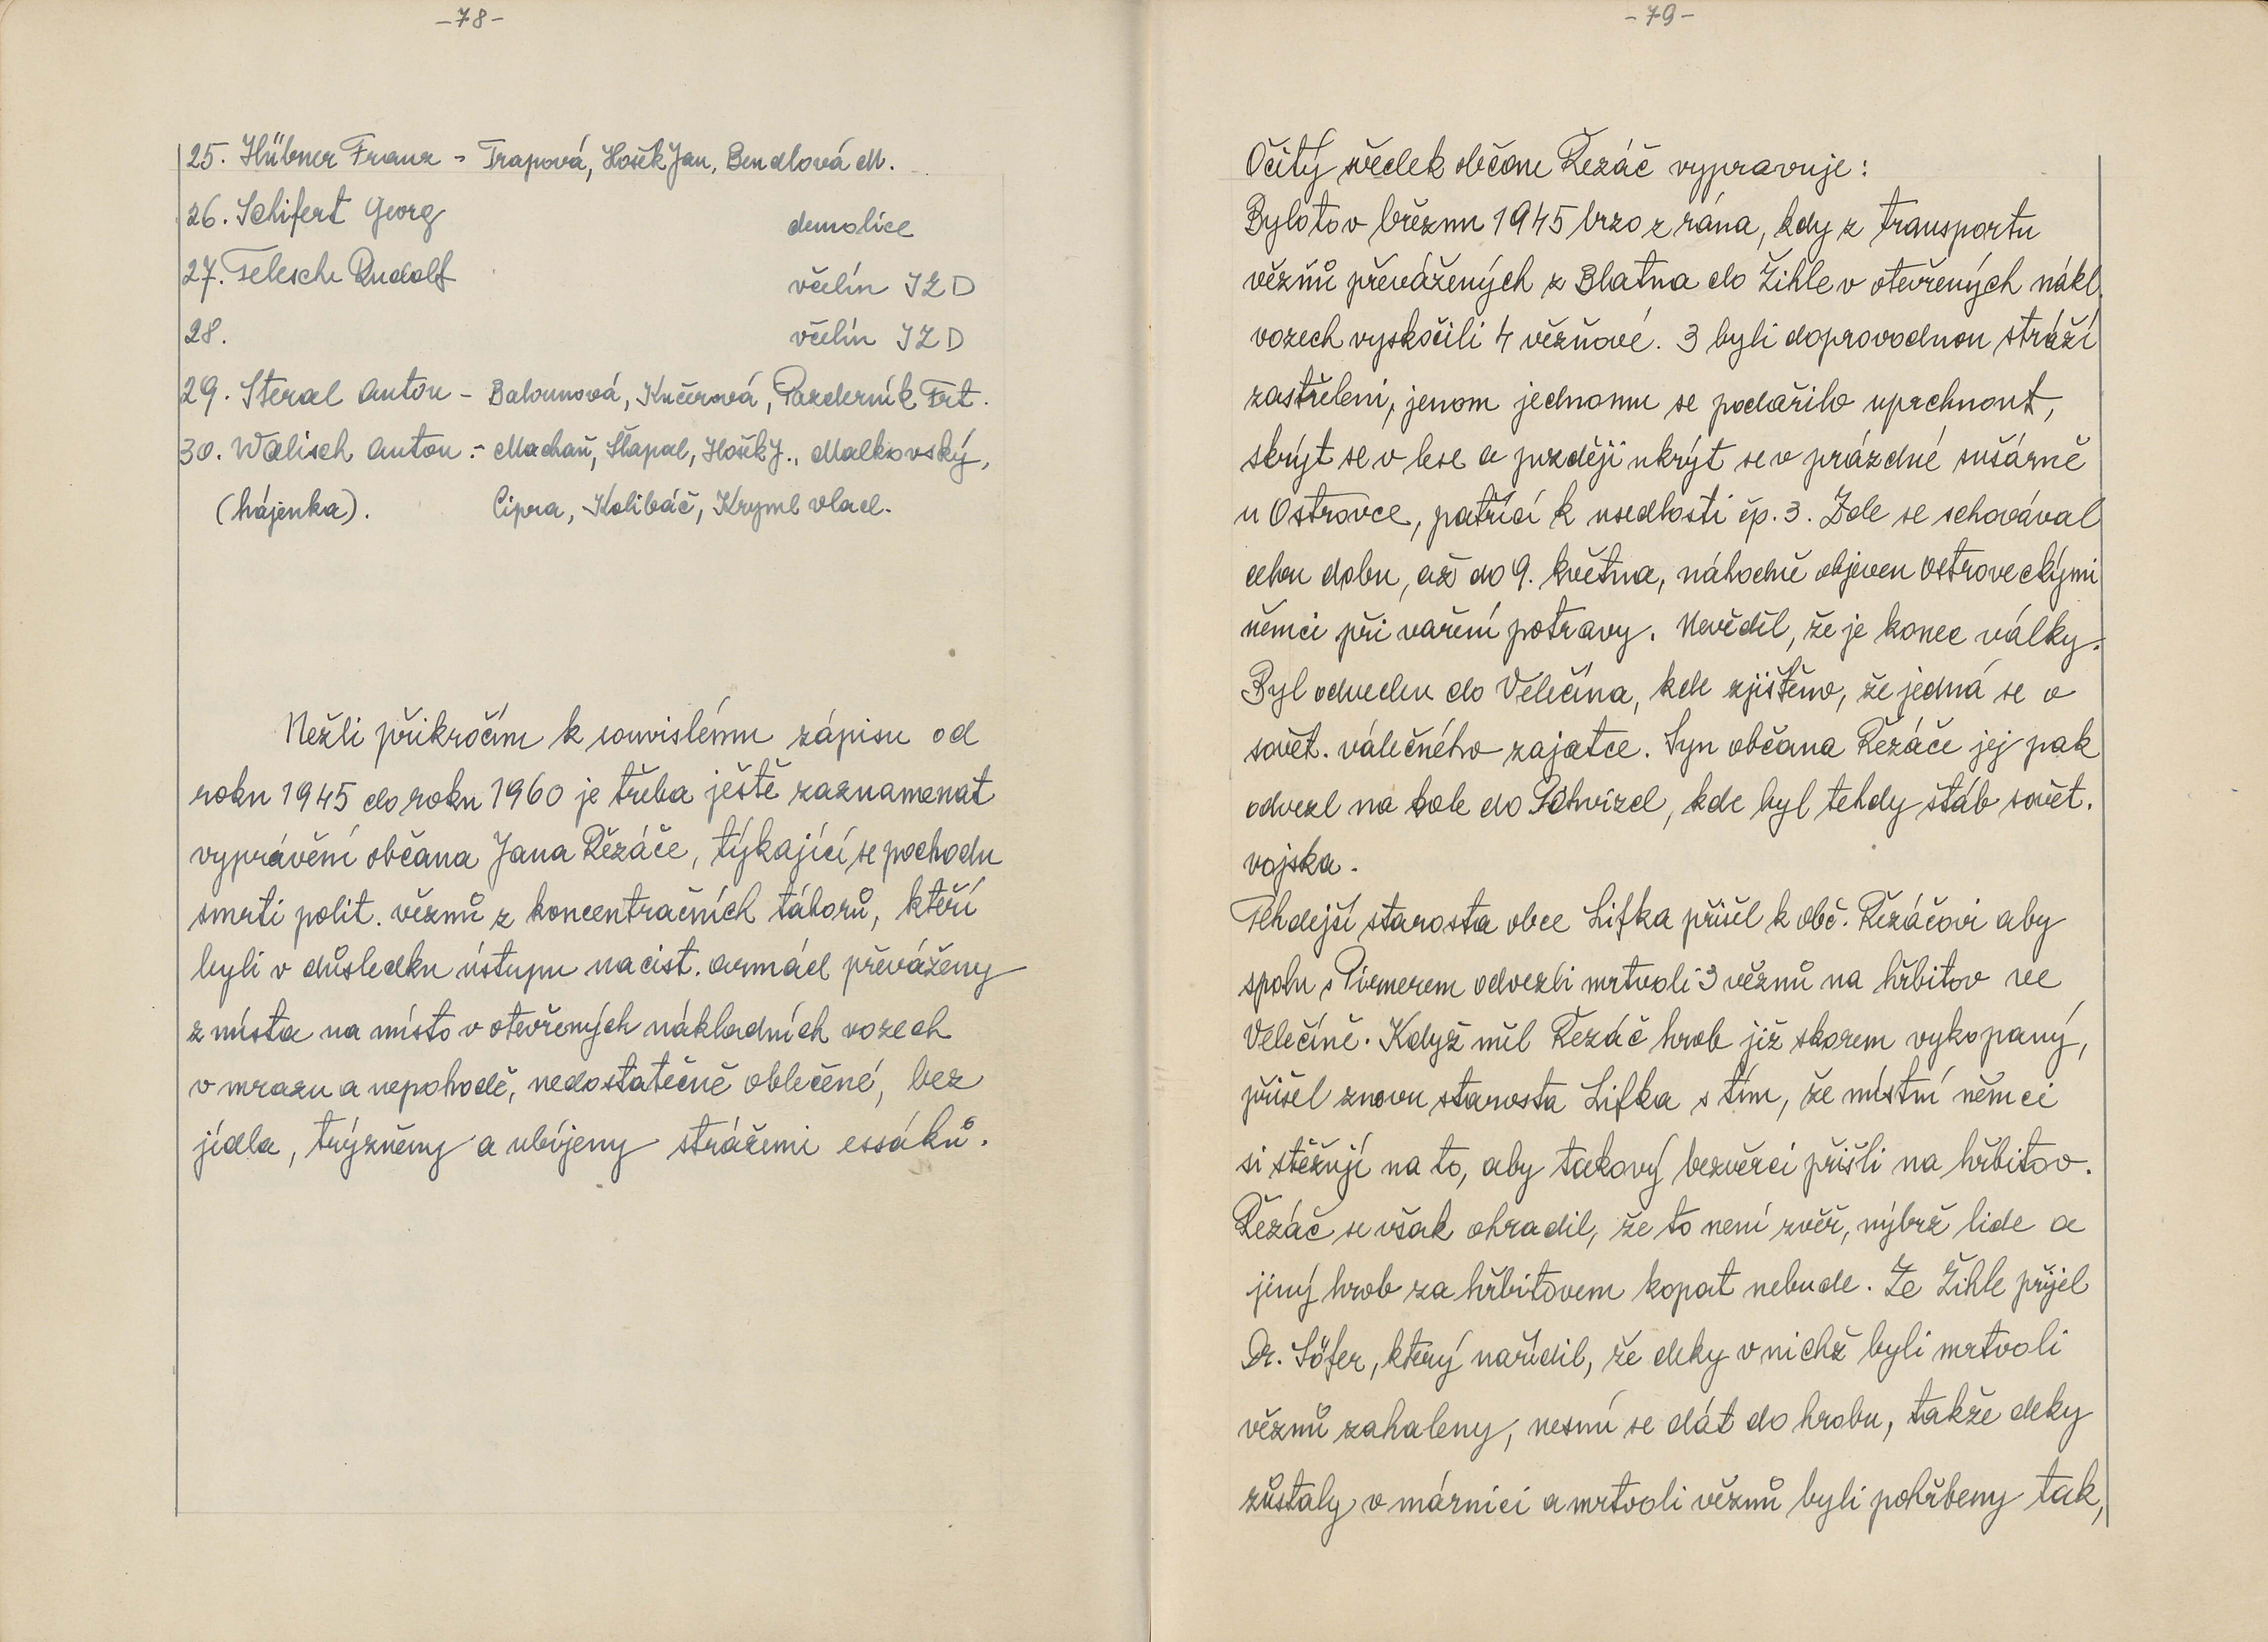 -78-
25. Hübner Franz - Trapová, Hošek Jan, Bendlová M.
26. Schifert Georg demolice
27. Felesche Rudolf včelín JZD
28. včelín JZD
29. Steral Anton - Balounová, Kučerová, Pazderník Frt.
30. Walisch Anton - Machaň, Šlapal, Hošek J., Malkovský,
(hájenka). Cipra, Kolibáč, Kryml vlad.
Nežli přikročím k souvislému zápisu od
roku 1945 do roku 1960 je třeba ještě zaznamenat
vyprávění občana Jana Řezáče, týkající se pochodu
smrti polit. vězňů z koncentračních táborů, kteří
byli v důsledku ústupu nacist. armád převáženy
z místa na místo v otevřených nákladních vozech
v mrazu a nepohodě, nedostatečně oblečené, bez
jídla, trýzněny a ubíjeny strážemi essáků.
-79-
Očitý svědek občan Řezáč vypravuje:
Bylo to v březnu 1945 brzo z rána, kdy z transportu
vězňů převážených z Blatna do Žihle v otevřených nákl.
vozech vyskočili 4 vězňové. 3 byli doprovodnou stráží
zastřeleni, jenom jednomu se podařilo uprchnout,
skrýt se v lese a později ukrýt se v prázdné sušárně
u Ostrovce, patřící k usedlosti čp. 3. Zde se schovával
celou dobu, až do 9. května, náhodně objeven ostroveckými
němci při vaření potravy. Nevěděl, že je konec války.
Byl odveden do Velečína, kde zjištěno, že jedná se o
sovět. válečného zajatce. Syn občana Řezáče jej pak
odvezl na kole do Schwizel, kde byl tehdy štáb sovět.
vojska.
Tehdejší starosta obce Lifka přišel k obč. Řezáčovi aby
spolu s Piemerem odvezli mrtvoli 3 vězňů na hřbitov ve
Velečíně. Když měl Řezáč hrob již skorem vykopaný,
přišel znovu starosta Lifka s tím, že místní němci
si stěžují na to, aby takový bezvěrci přišli na hřbitov.
Řezáč se však ohradil, že to není zvěř, nýbrž lide a
jiný hrob za hřbitovem kopat nebude. Ze Žihle přijel
Dr. Söfer, který nařídil, že deky v nichž byli mrtvoli
vězňů zahaleny, nesmí se dát do hrobu, takže deky
zůstaly v márnici a mrtvoli vězňů byli pohřbeny tak,